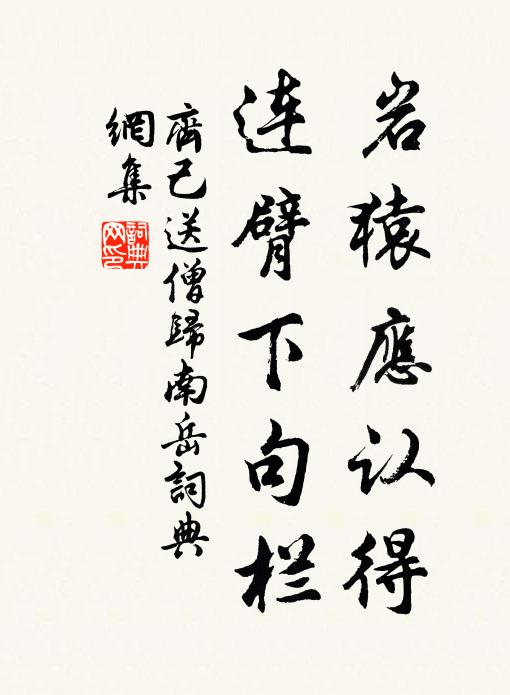 岩猿應认得
连臂下句栏
齊己送僧歸南岳詞典
網集
詞典网印